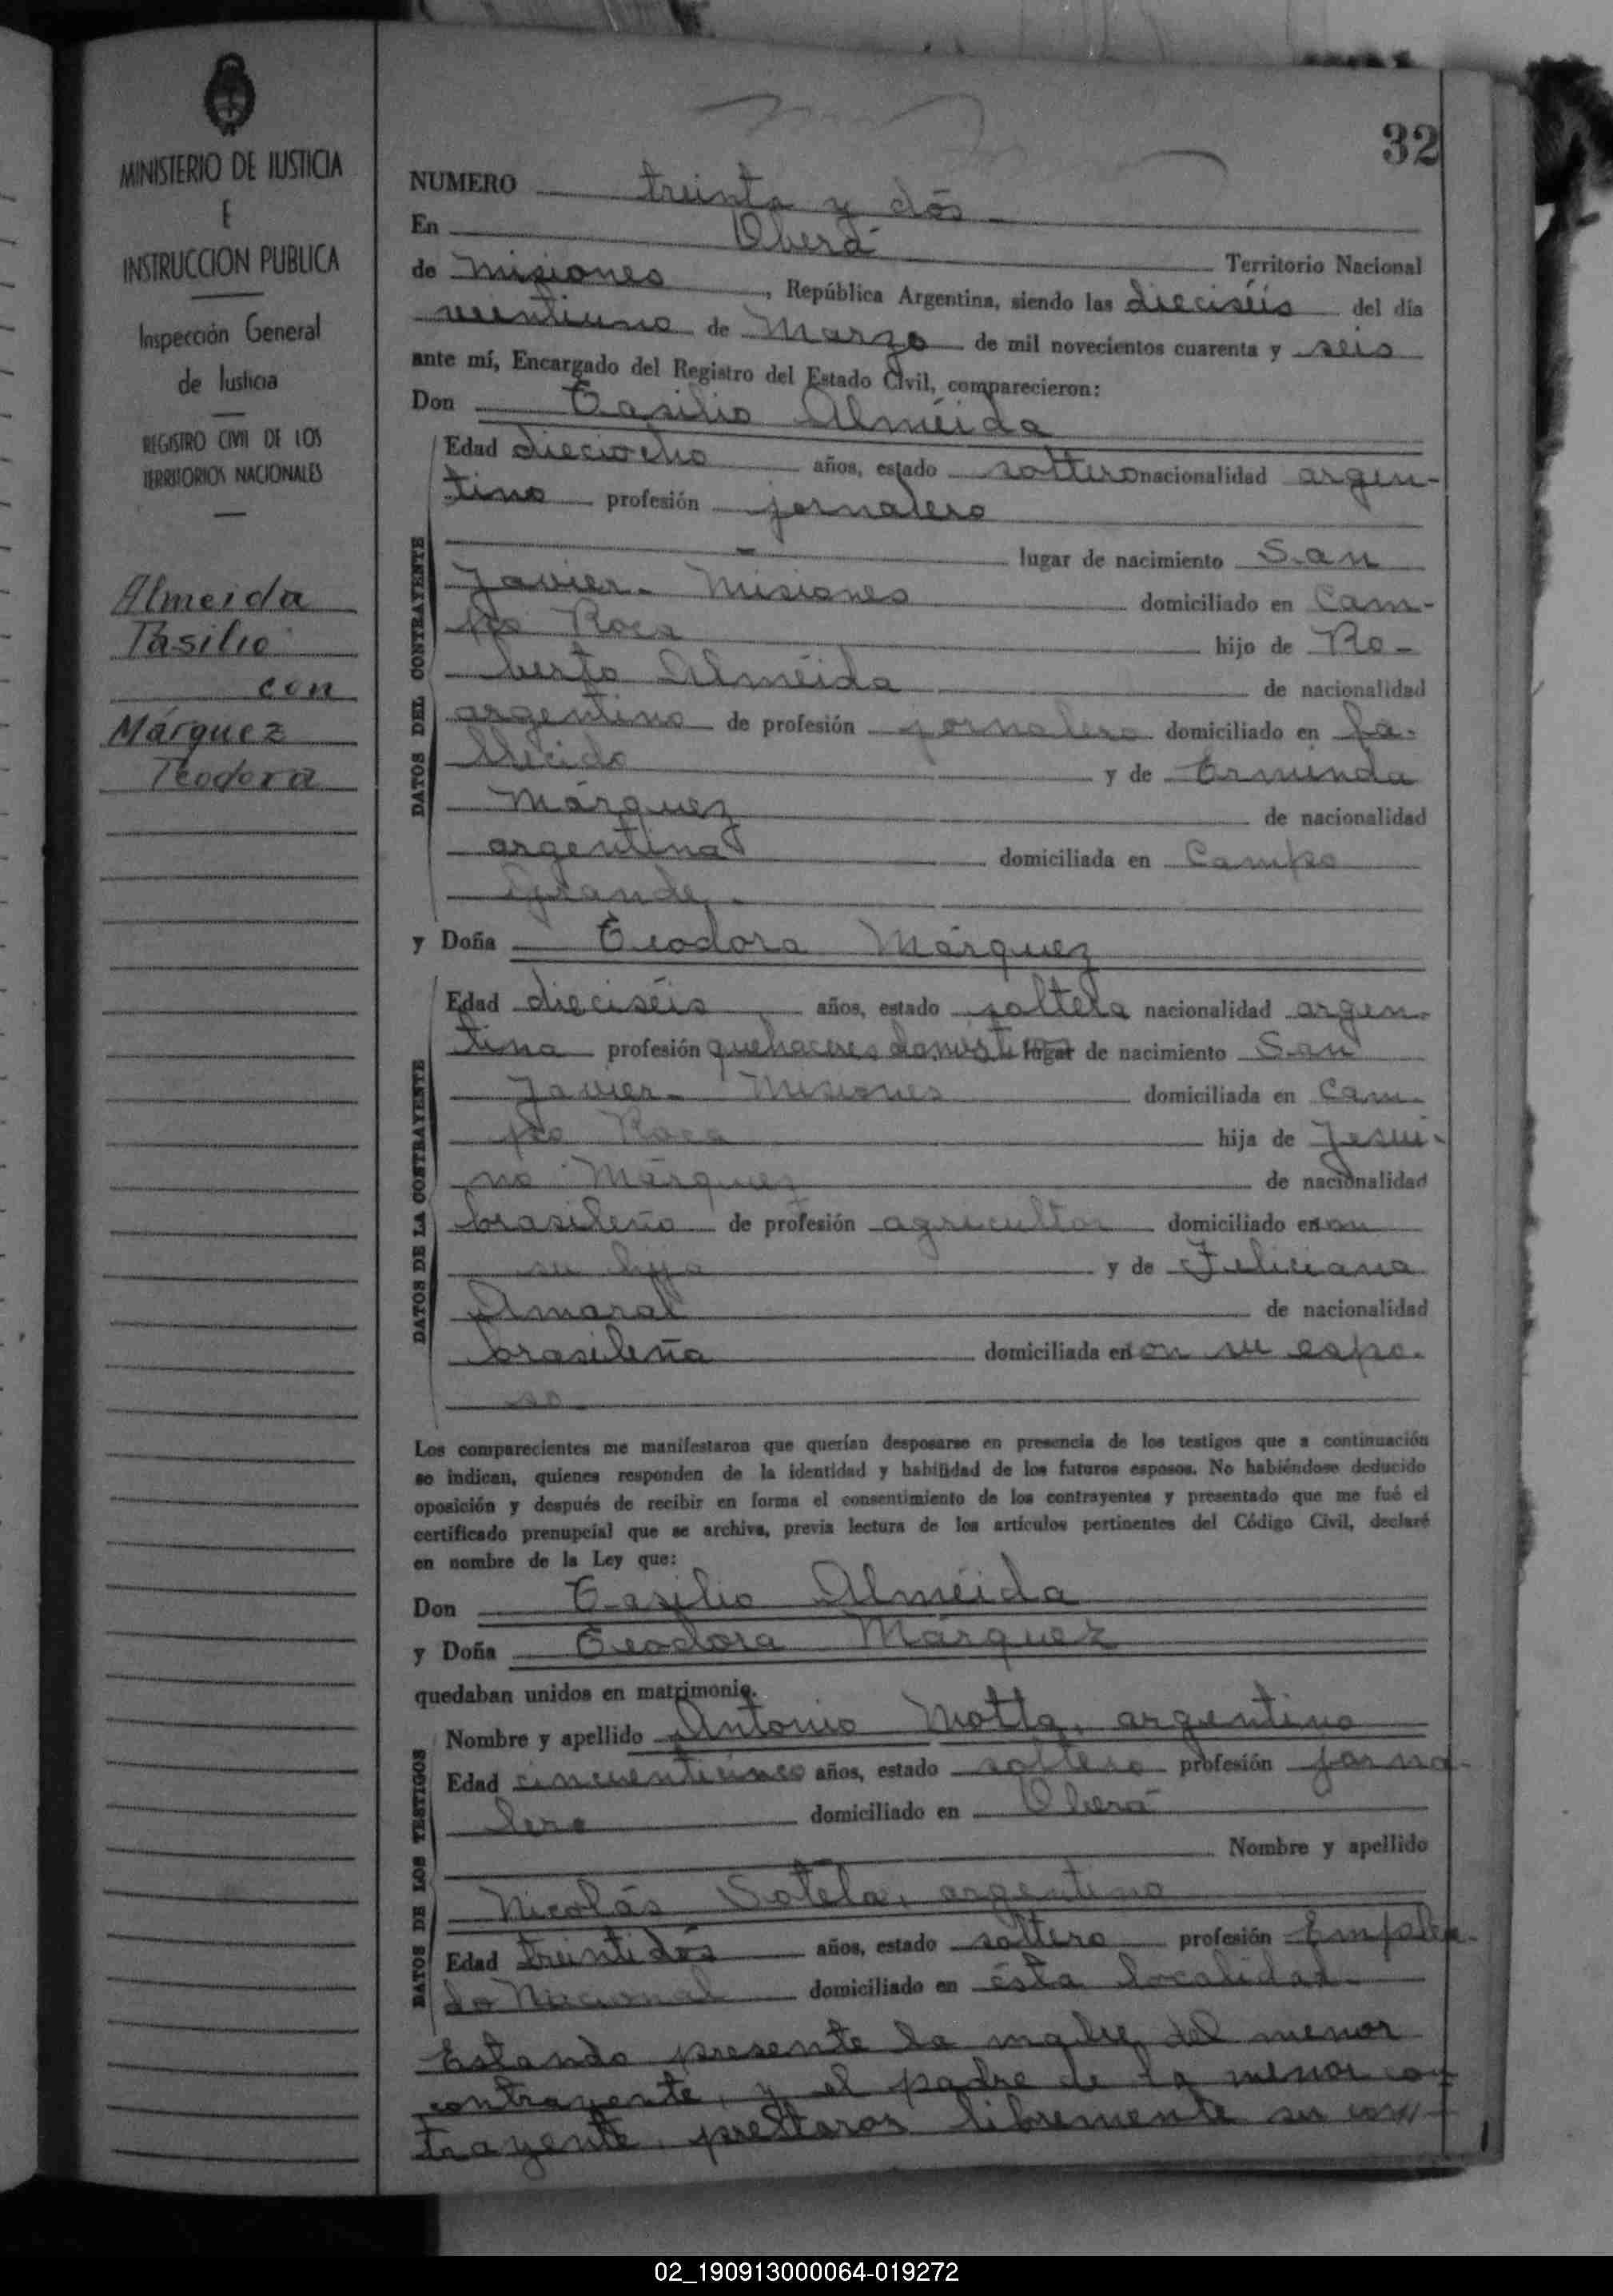 MINISTERIO DE JUSTICIA
E
INSTRUCCION PUBLICA
Inspección General
de Justicia
REGISTRO CIVIL DE LOS
TERRITORIOS NACIONALES
Almeida
Tasilio
con
Márquez
Teodora
32
NUMERO treinta y dós
En Oberá
Territorio Nacional
de Misiones, República Argentina, siendo las dieciséis del día
veintiuno de Marzo de mil novecientos cuarenta y seis
ante mí, Encargado del Registro del Estado Civil, comparecieron:
Don Tasilio Alméida
DATOS DEL CONTRAYENTE
Edad dieciocho años, estado soltero nacionalidad argen-
tino profesión jornalero
lugar de nacimiento San
Javier - Misiones domiciliado en Cam-
po Roca hijo de Ro-
berto Alméida de nacionalidad
argentino de profesión jornalero domiciliado en fa-
llecido y de Erminda
Márquez de nacionalidad
argentina domiciliada en Campo
Grande.
y Doña Teodora Márquez
DATOS DE LA CONTRAYENTE
Edad dieciséis años, estado soltera nacionalidad argen-
tina profesión quehaceres domésticos lugar de nacimiento San
Javier - Misiones domiciliada en Cam-
po Roca hija de Jesui-
no Márquez de nacionalidad
brasileño de profesión agricultor domiciliado en con
su hija y de Feliciana
Amaral de nacionalidad
brasileña domiciliada en con su espo-
so
Los comparecientes me manifestaron que querían desposarse en presencia de los testigos que a continuación
se indican, quienes responden de la identidad y habilidad de los futuros esposos. No habiéndose deducido
oposición y después de recibir en forma el consentimiento de los contrayentes y presentado que me fué el
certificado prenupcial que se archiva, previa lectura de los artículos pertinentes del Código Civil, declaré
en nombre de la Ley que:
Don Tasilio Alméida
y Doña Teodora Márquez
quedaban unidos en matrimonio.
DATOS DE LOS TESTIGOS
Nombre y apellido Antonio Motta, argentino
Edad cincuenticinco años, estado soltero profesión jorna-
lero domiciliado en Oberá
Nombre y apellido
Nicolás Sotelo, argentino
Edad treintidós años, estado soltero profesión Emplea-
do Nacional domiciliado en ésta localidad.
Estando presente la madre del menor
contrayente, y el padre de la menor con
trayente, prestaron libremente su con-
02_190913000064-019272